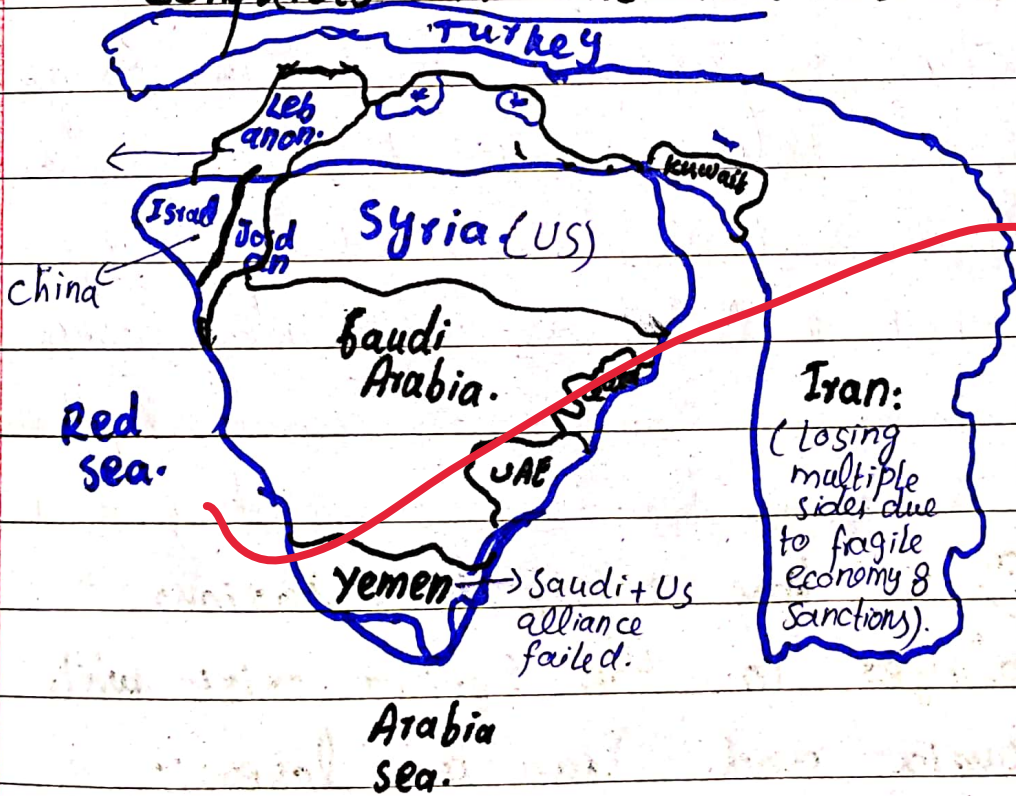 Turkey
Leb
anon.
Kuwait
Israel
Jord
an
Syria (US)
China
Saudi
Arabia.
Red
sea.
UAE
Iran:
(Losing
multiple
sides due
to fragile
economy &
Sanctions).
Yemen → Saudi + Us
alliance
failed.
Arabia
sea.